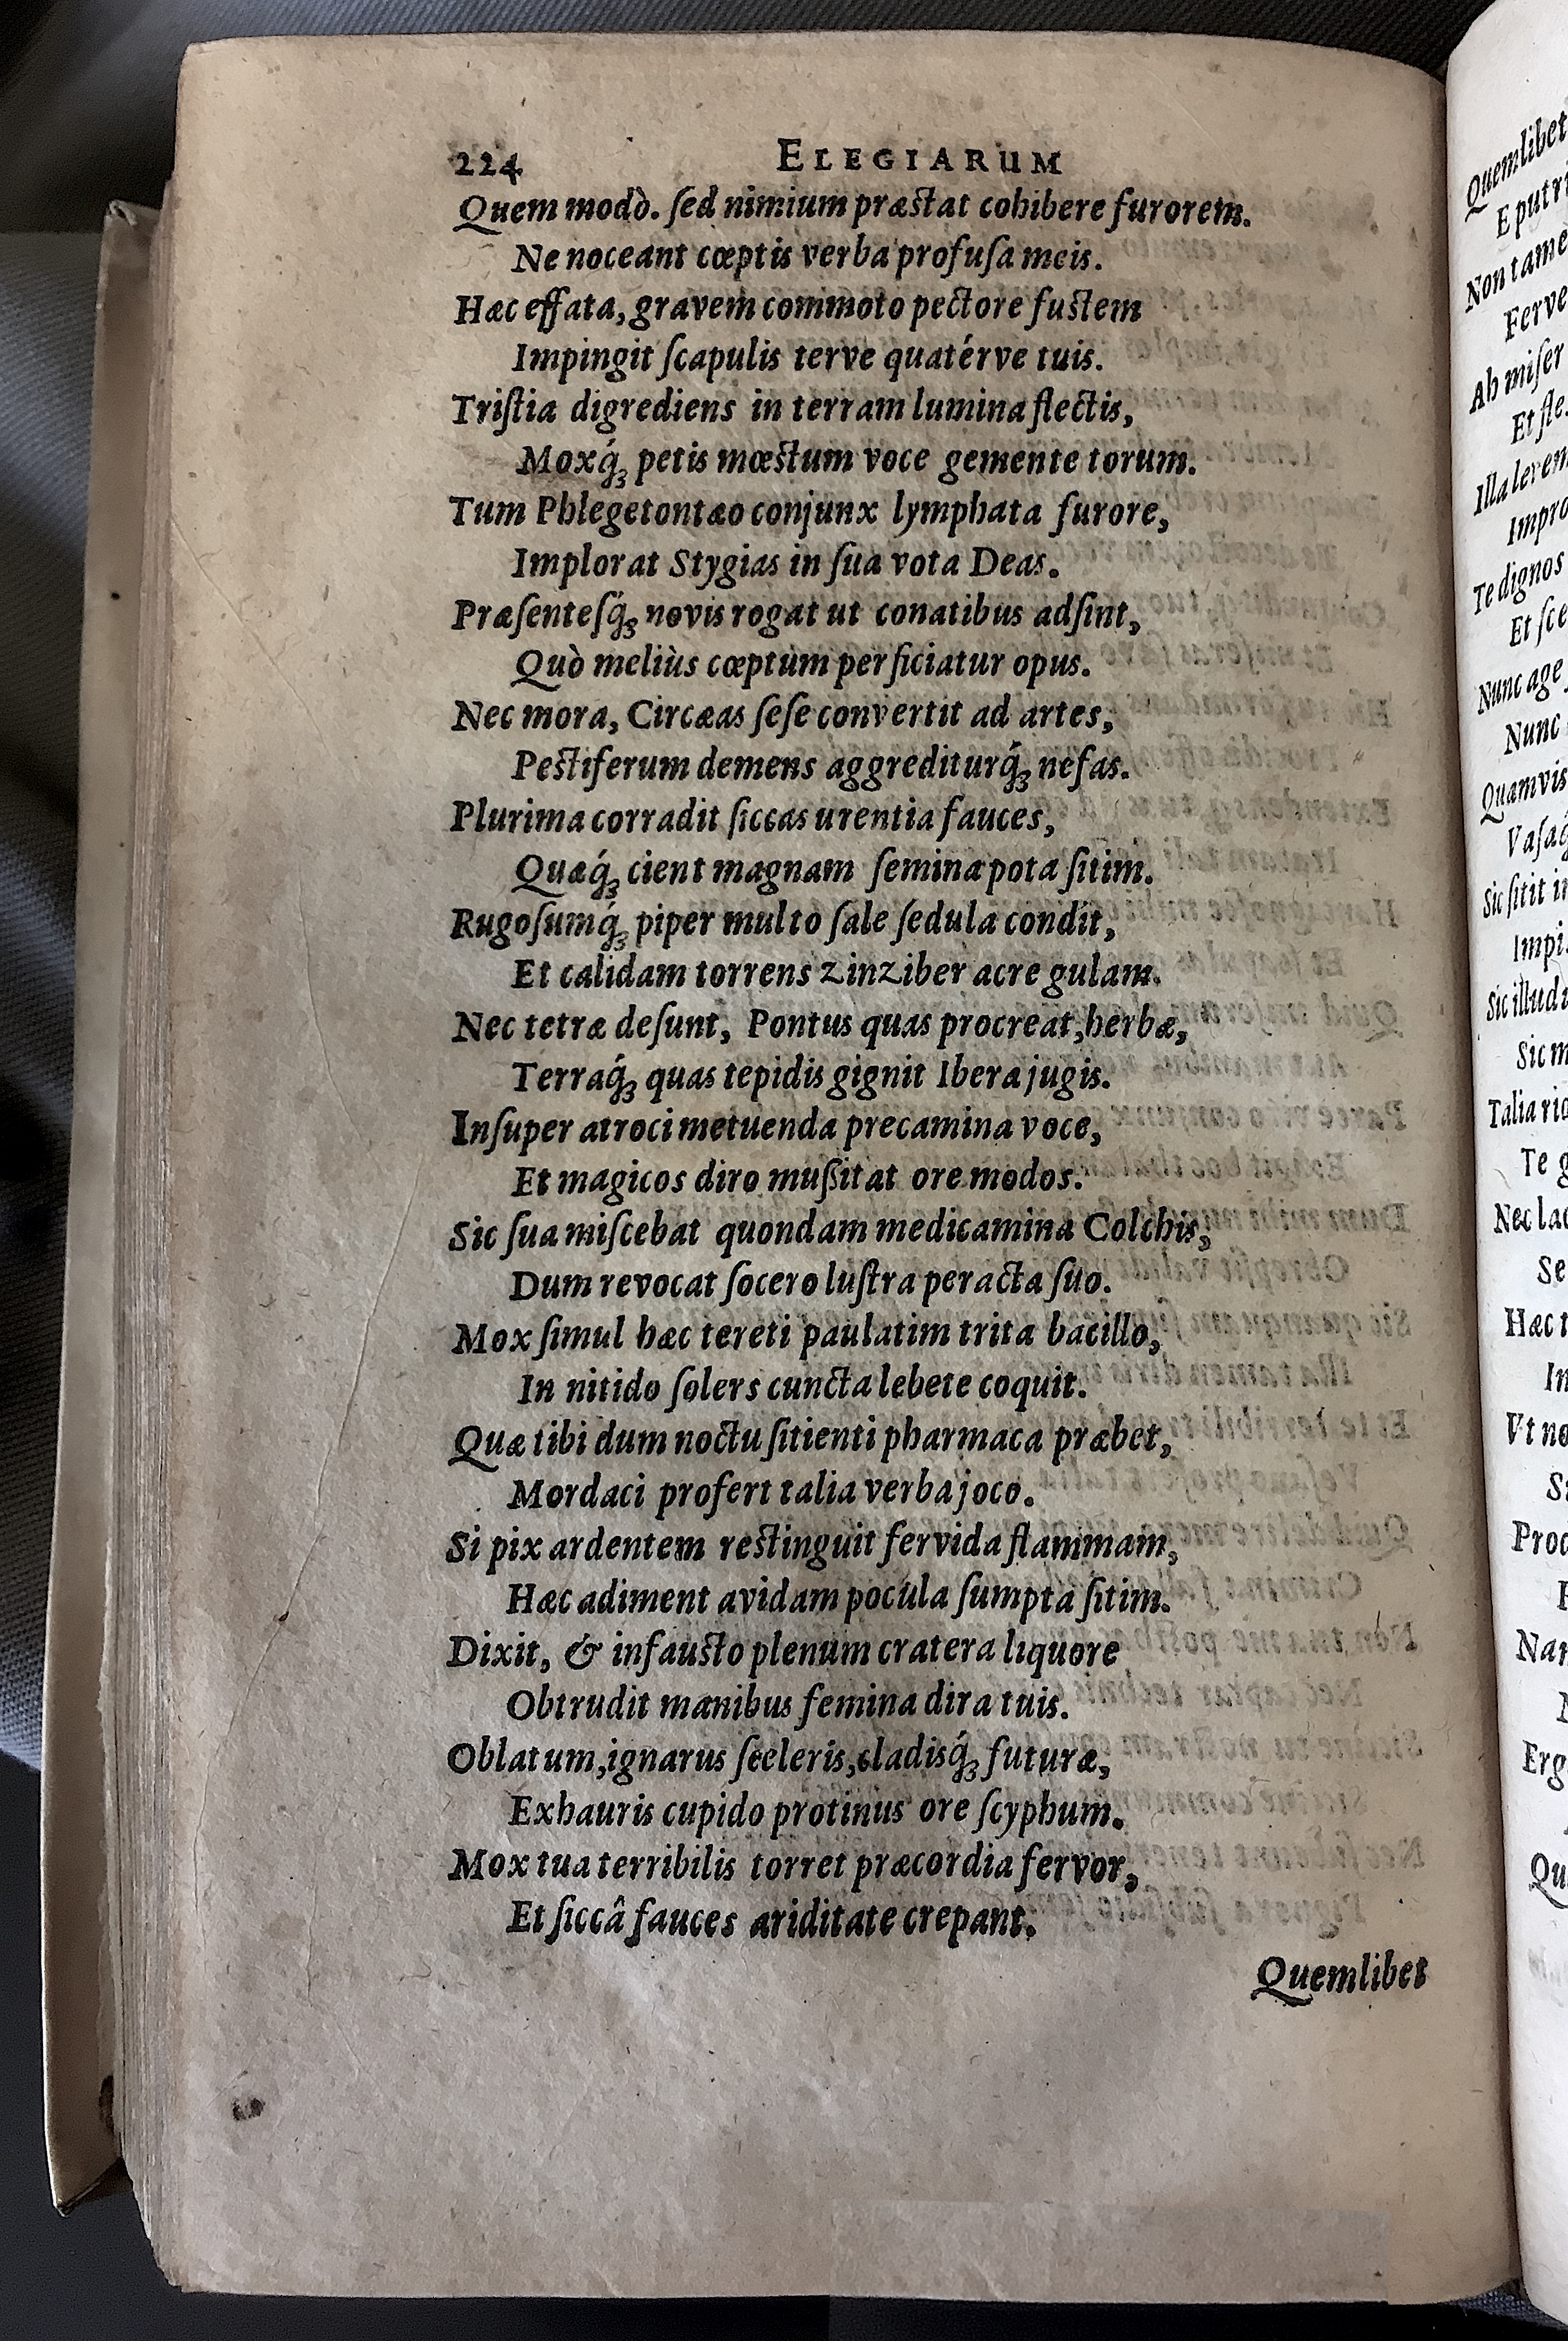 224 ELEGIARUM
Quem modò. ſed nimium præſtat cohibere furorem.
Ne noceant cœptis verba profuſa meis.
Hæc effata, gravem commoto pectore fuſtem
Impingit ſcapulis terve quatérve tuis.
Triſtia digrediens in terram lumina flectis,
Moxq́ꝫ petis mœſtum voce gemente torum.
Tum Phlegetontæo conjunx lymphata furore,
Implorat Stygias in ſua vota Deas.
Præſenteſq́ꝫ novis rogat ut conatibus adſint,
Quò meliùs cœptum perficiatur opus.
Nec mora, Circæas ſeſe convertit ad artes,
Peſtiferum demens aggrediturq́ꝫ nefas.
Plurima corradit ſiccas urentia fauces,
Quæq́ꝫ cient magnam ſemina pota ſitim.
Rugoſumq́ꝫ piper multo ſale ſedula condit,
Et calidam torrens zinziber acre gulam.
Nec tetræ deſunt, Pontus quas procreat, herbæ,
Terraq́ꝫ quas tepidis gignit Ibera jugis.
Inſuper atroci metuenda precamina voce,
Et magicos diro muſsitat ore modos.
Sic ſua miſcebat quondam medicamina Colchis,
Dum revocat ſocero luſtra peracta ſuo.
Mox ſimul hæc tereti paulatim trita bacillo,
In nitido ſolers cuncta lebete coquit.
Quæ tibi dum noctu ſitienti pharmaca præbet,
Mordaci profert talia verba joco.
Si pix ardentem reſtinguit fervida flammam,
Hæc adiment avidam pocula ſumpta ſitim.
Dixit, & infauſto plenum cratera liquore
Obtrudit manibus femina dira tuis.
Oblatum, ignarus ſceleris, cladisq́ꝫ futuræ,
Exhauris cupido protinus ore ſcyphum.
Mox tua terribilis torret præcordia fervor,
Et ſiccâ fauces ariditate crepant.
Quemlibet
Quemlibet
E putri
Non tame
Ferve
Ah miſer
Et fle
Illa lerem
Impro
Te dignos
Et ſce
Nunc age
Nunc
Quamvis
Vaſaq́
Sic ſitit in
Impi
Sic illudi
Sic m
Talia ric
Te g
Nec lac
Se
Hæc t
In
Vt no
S
Proc
Nar
Erg
Qu